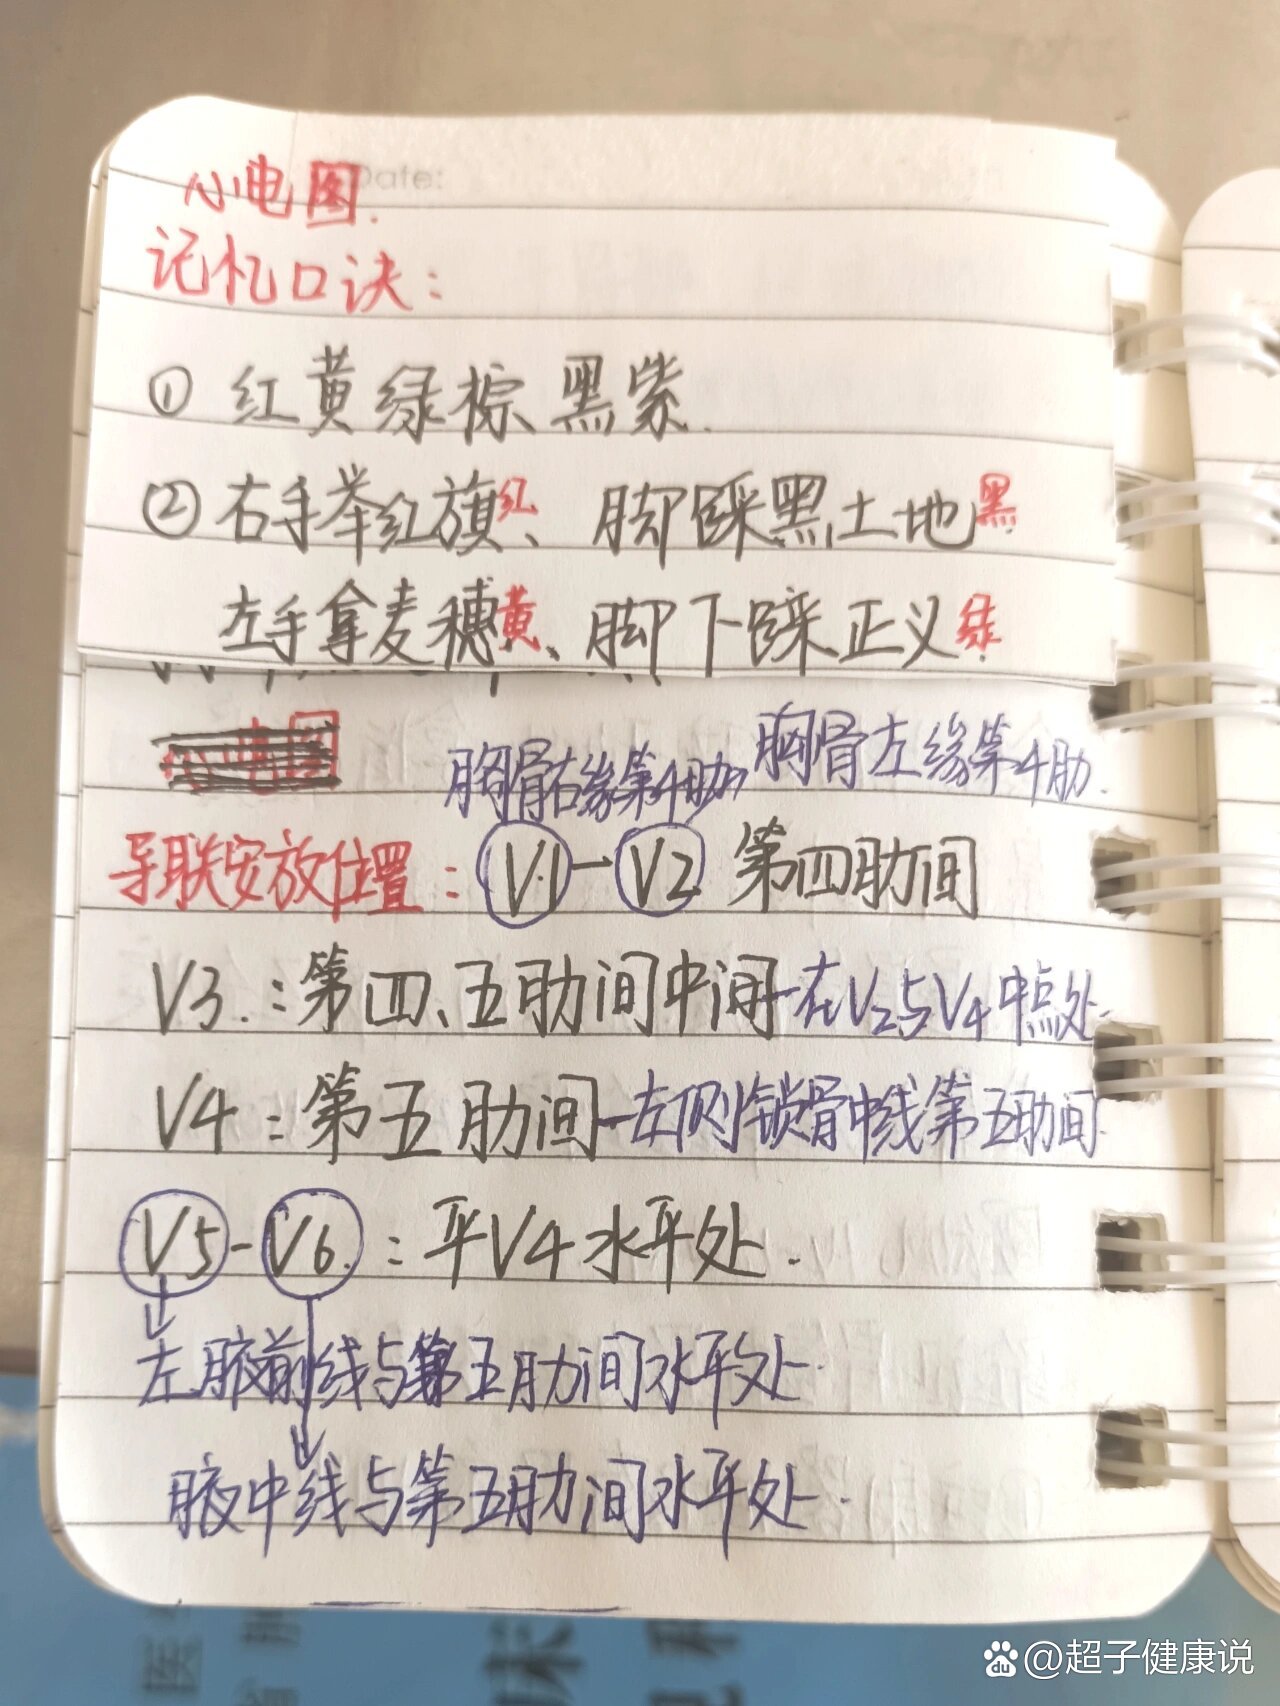 Date:
心电图.
记忆口诀:
① 红黄绿棕、黑紫.
② 右手举红旗红、脚踩黑土地黑.
左手拿麦穗黄、脚下踩正义绿.
胸骨右缘第4肋 胸骨左缘第4肋.
导联安放位置: V1-V2 第四肋间
V3.:第四、五肋间中间-在V2与V4中点处.
V4:第五肋间-左侧锁骨中线第五肋间.
V5-V6.:平V4水平处.
左腋前线与第五肋间水平处.
腋中线与第五肋间水平处.
@超子健康说